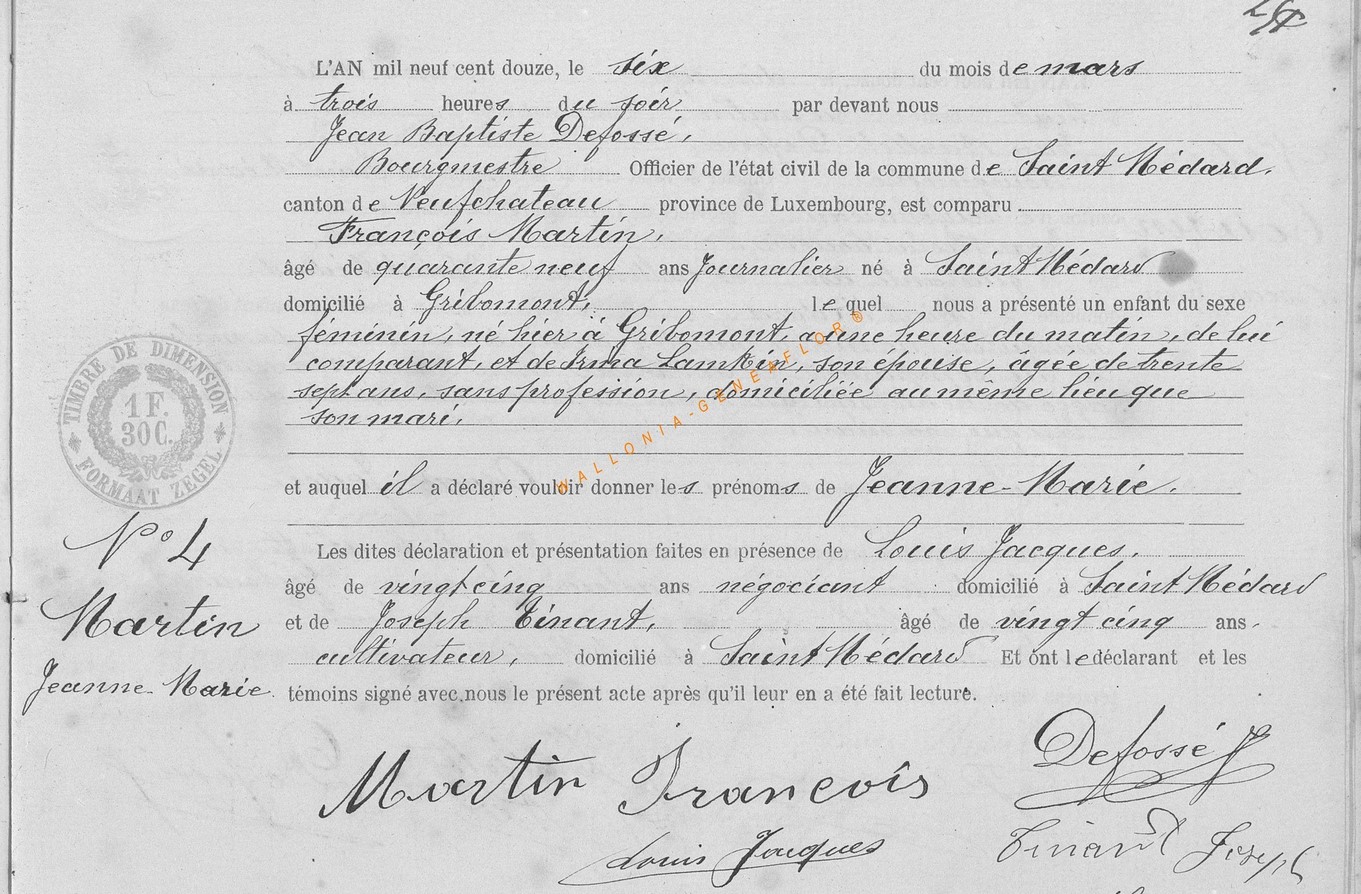 L'AN mil neuf cent douze, le six du mois de mars
à trois heures du soir par devant nous
Jean Baptiste Defossé,
Bourgmestre Officier de l'état civil de la commune de Saint Médard,
canton de Neufchateau province de Luxembourg, est comparu
François Martin,
âgé de quarante neuf ans Journalier né à Saint Médard
domicilié à Gribomont, lequel nous a présenté un enfant du sexe
féminin, né hier à Gribomont, a une heure du matin, de lui
comparant, et de Irma Lamkin, son épouse, âgée de trente
sept ans, sans profession, domiciliée au même lieu que
son mari.
WALLONIA-GENEAFLOR®
TIMBRE DE DIMENSION
1 F.
30 C.
FORMAAT ZEGEL
et auquel il a déclaré vouloir donner les prénoms de Jeanne-Marie.
Les dites déclaration et présentation faites en présence de Louis Jacques,
âgé de vingt cinq ans négociant domicilié à Saint Médard
et de Joseph Tinant, âgé de vingt cinq ans,
cultivateur, domicilié à Saint Médard Et ont le déclarant et les
témoins signé avec nous le présent acte après qu'il leur en a été fait lecture.
N° 4
Martin
Jeanne-Marie.
Martin François
Defossé
Louis Jacques
Tinant Joseph